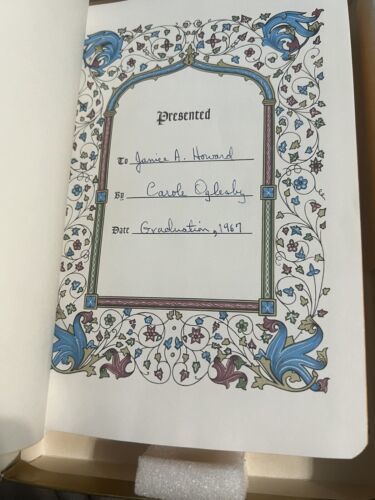 Presented
To Janice A. Howard
By Carole Oglesby
Date Graduation, 1967